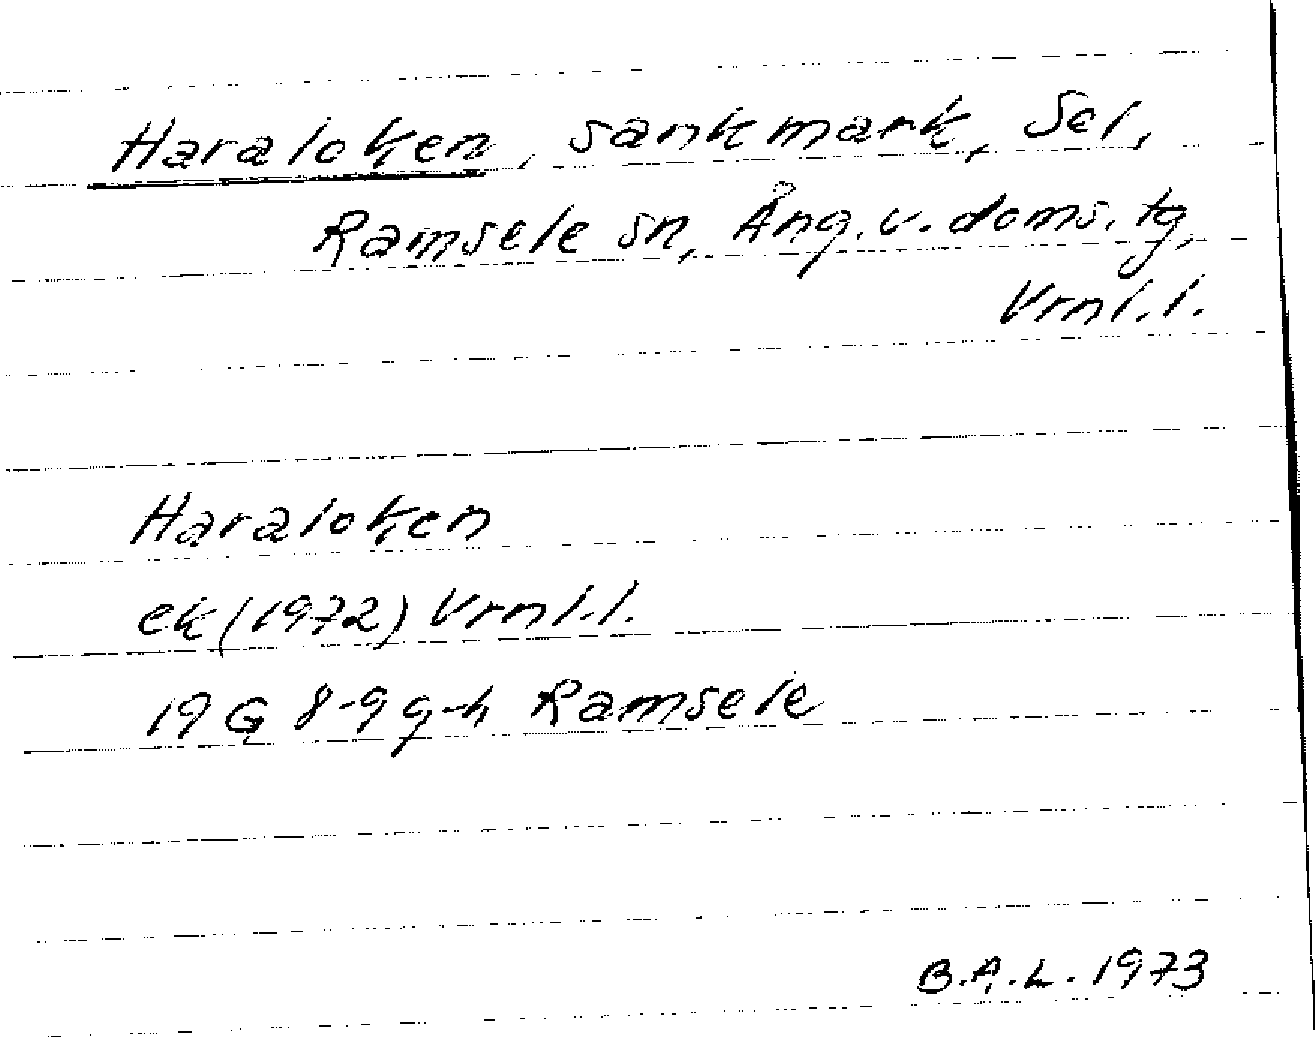 Haraloken, sankmark, Sel,
Ramsele sn, Ång. v. doms. tg,
Vrnl. l.
Haraloken
ek (1972) Vrnl. l.
19 G 8-9 g-h Ramsele
B.A.L. 1973